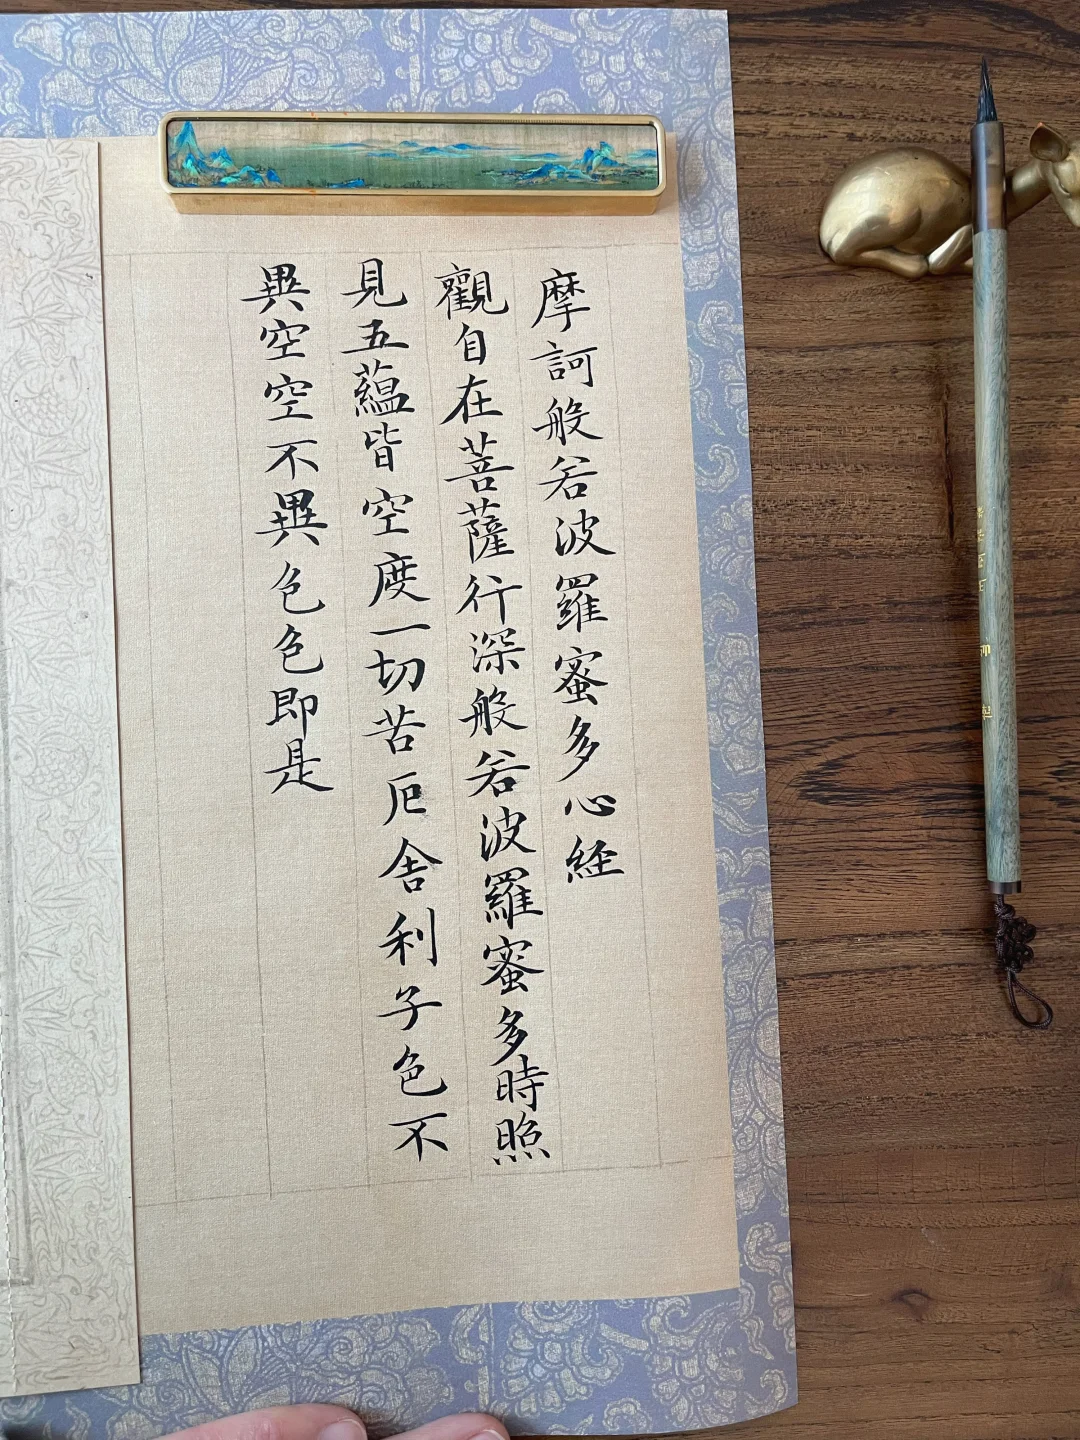 摩訶般若波羅蜜多心経
觀自在菩薩行深般若波羅蜜多時照
見五蘊皆空度一切苦厄舎利子色不
異空空不異色色即是